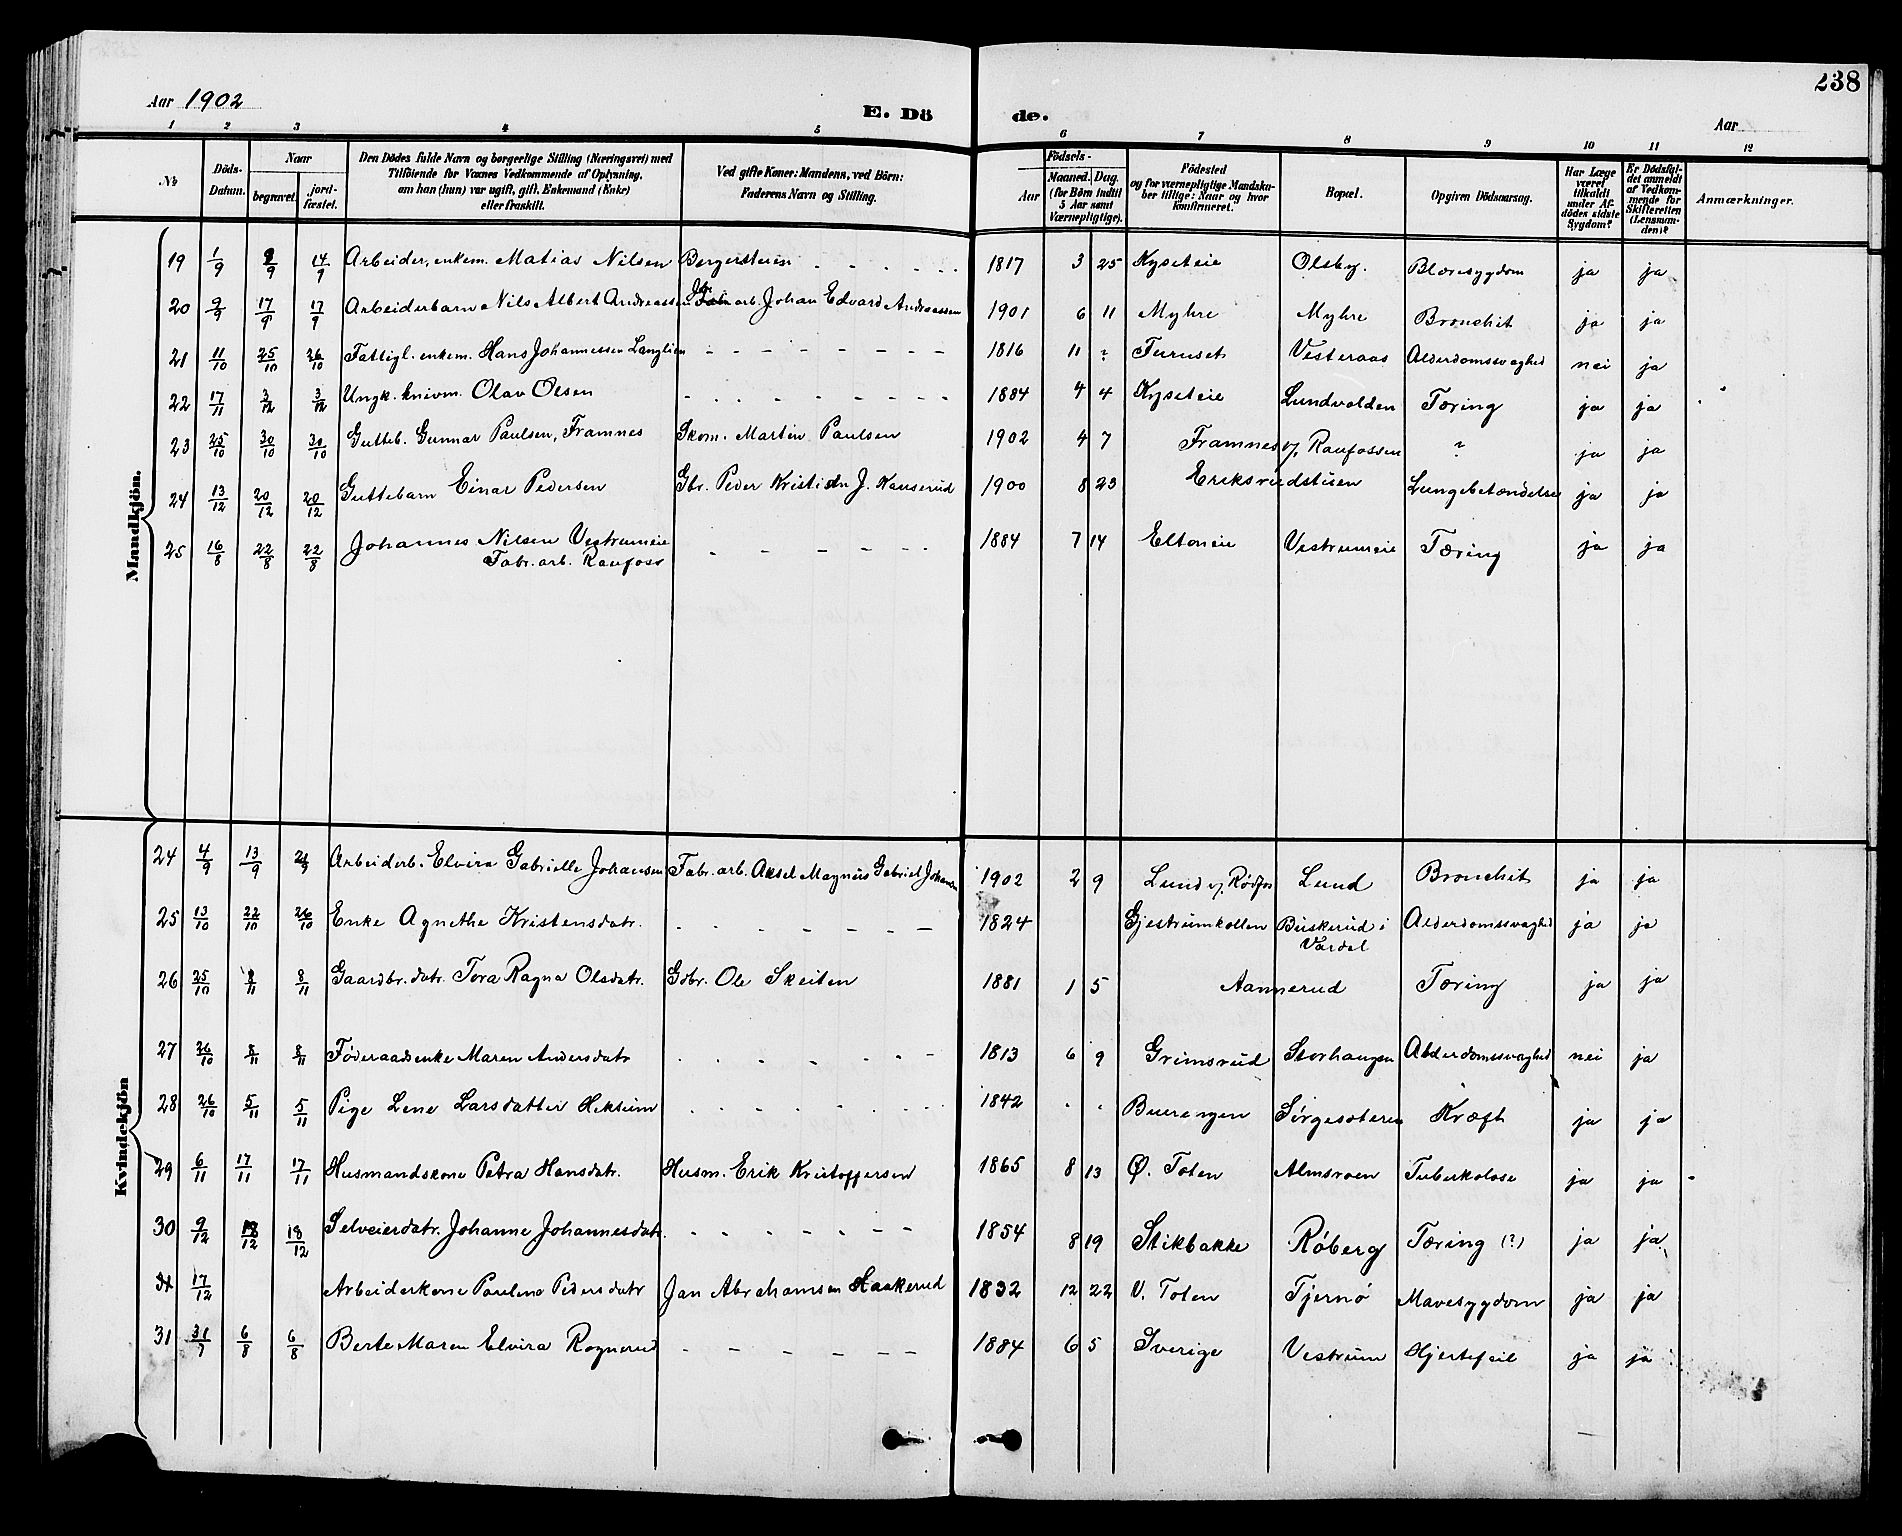 238
Aar 1902
E. Dö de.
Aar
1 2 3 4 5 6 7 8 9 10 11 12
№
Döds-Datum.
Naar
begravet.
jord-fæstet.
Den Dödes fulde Navn og borgerlige Stilling (Næringsvei) med
Tilföiende for Voxnes Vedkommende af Oplysning,
om han (hun) var ugift, gift, Enkemand (Enke)
eller fraskilt.
Ved gifte Koner: Mandens, ved Börn:
Faderens Navn og Stilling.
Födsels-
Aar
Maaned. Dag.
(for Börn indtil
5 Aar samt
Værnepligtige).
Födested
og for værnepligtige Mandska-
ber tillige: Naar og hvor
konfirmeret.
Bopæl.
Opgiven Dödsaarsag.
Har Læge
været
tilkaldt
under Af-
dödes sidste
Sygdom?
Er Dödsfal-
det anmeldt
af Vedkom-
mende for
Skifteretten
(Lensman-
den)?
Anmærkninger.
Mandkjön.
19 1/9 9/9 14/9 Arbeider, enkem. Matias Nilsen Bergersteren - - - - - 1817 3 25 Kyseteie Olsby. Blæresygdom ja ja
20 9/9 17/9 17/9 Arbeiderbarn Nils Albert Andreassen arb. Johan Edvard Andreassen 1901 6 11 Myhre Myhre Bronchit ja ja
21 11/10 25/10 26/10 Fattigl. enkem. Hans Johannessen Langlien - - - - - - - 1816 11 ? Furuset Vesteraas Alderdomssvaghed nei ja
22 17/11 3/12 3/12 Ungk. knivm. Olav Olsen - - - - - - - - 1884 4 4 Kyseteie Lundvolden Tæring ja ja
23 25/10 30/10 30/10 Gutteb. Gunnar Paulsen, Framnes Skom. Martin Paulsen 1902 4 7 Framnes v/ Raufossen ? ja ja
24 13/12 20/12 20/12 Guttebarn Einar Pedersen Gbr. Peder Kristian J. Hauserud 1900 8 23 Eriksrudstuen Lungebetændelse ja ja
25 16/8 22/8 22/8 Johannes Nilsen Vestrumeie - - - - - 1884 7 14 Eltoneie Vestrumeie Tæring ja ja
Fabr. arb. Raufoss
Kvindekjön
24 4/9 13/9 Arbeiderb. Elvira Gabrielle Johansen Fabr. arb. Aksel Magnus Gabriel Johansen 1902 2 9 Lund v/ Rødfos Lund Bronchit ja ja
25 13/10 22/10 26/10 Enke Agnethe Kristensdatr. - - - - - - - 1824 Gjestrumkollen Buskerud i Alderdomssvaghed ja ja
Vardal
26 25/10 8/11 8/11 Gaardbr. datr. Tora Ragna Olsdatr. Gdbr. Ole Skeiten 1881 1 5 Aannerud Tæring ja ja
27 26/10 8/11 8/11 Føderaadsenke Maren Andersdatr - - - - - 1813 6 9 Grimsrud Storhaugen Alderdomssvaghed nei ja
28 26/10 5/11 5/11 Pige Lene Larsdatter Heksum - - - - - - 1842 - - Buerengen Sørgesæteren Kræft ja ja
29 6/11 17/11 17/11 Husmandskone Petra Hansdatr. Husm. Erik Kristoffersen 1865 8 13 Ø. Toten Almsroen Tuberkolose ja ja
30 9/12 18/12 18/12 Selveierdatr. Johanne Johannesdatr. - - - - - - 1854 8 19 Stikbakke Røberg Tæring (?) ja ja
31 17/12 Arbeiderkone Pauline Pedersdatr Jan Abrahamsen Haakerud 1832 12 22 V. Toten Tjernø Mavesygdom ja ja
31 31/7 6/8 6/8 Berte Maren Elvira Rognerud - - - - - - 1884 6 5 Sverige Vestrum Hjertefeil ja ja